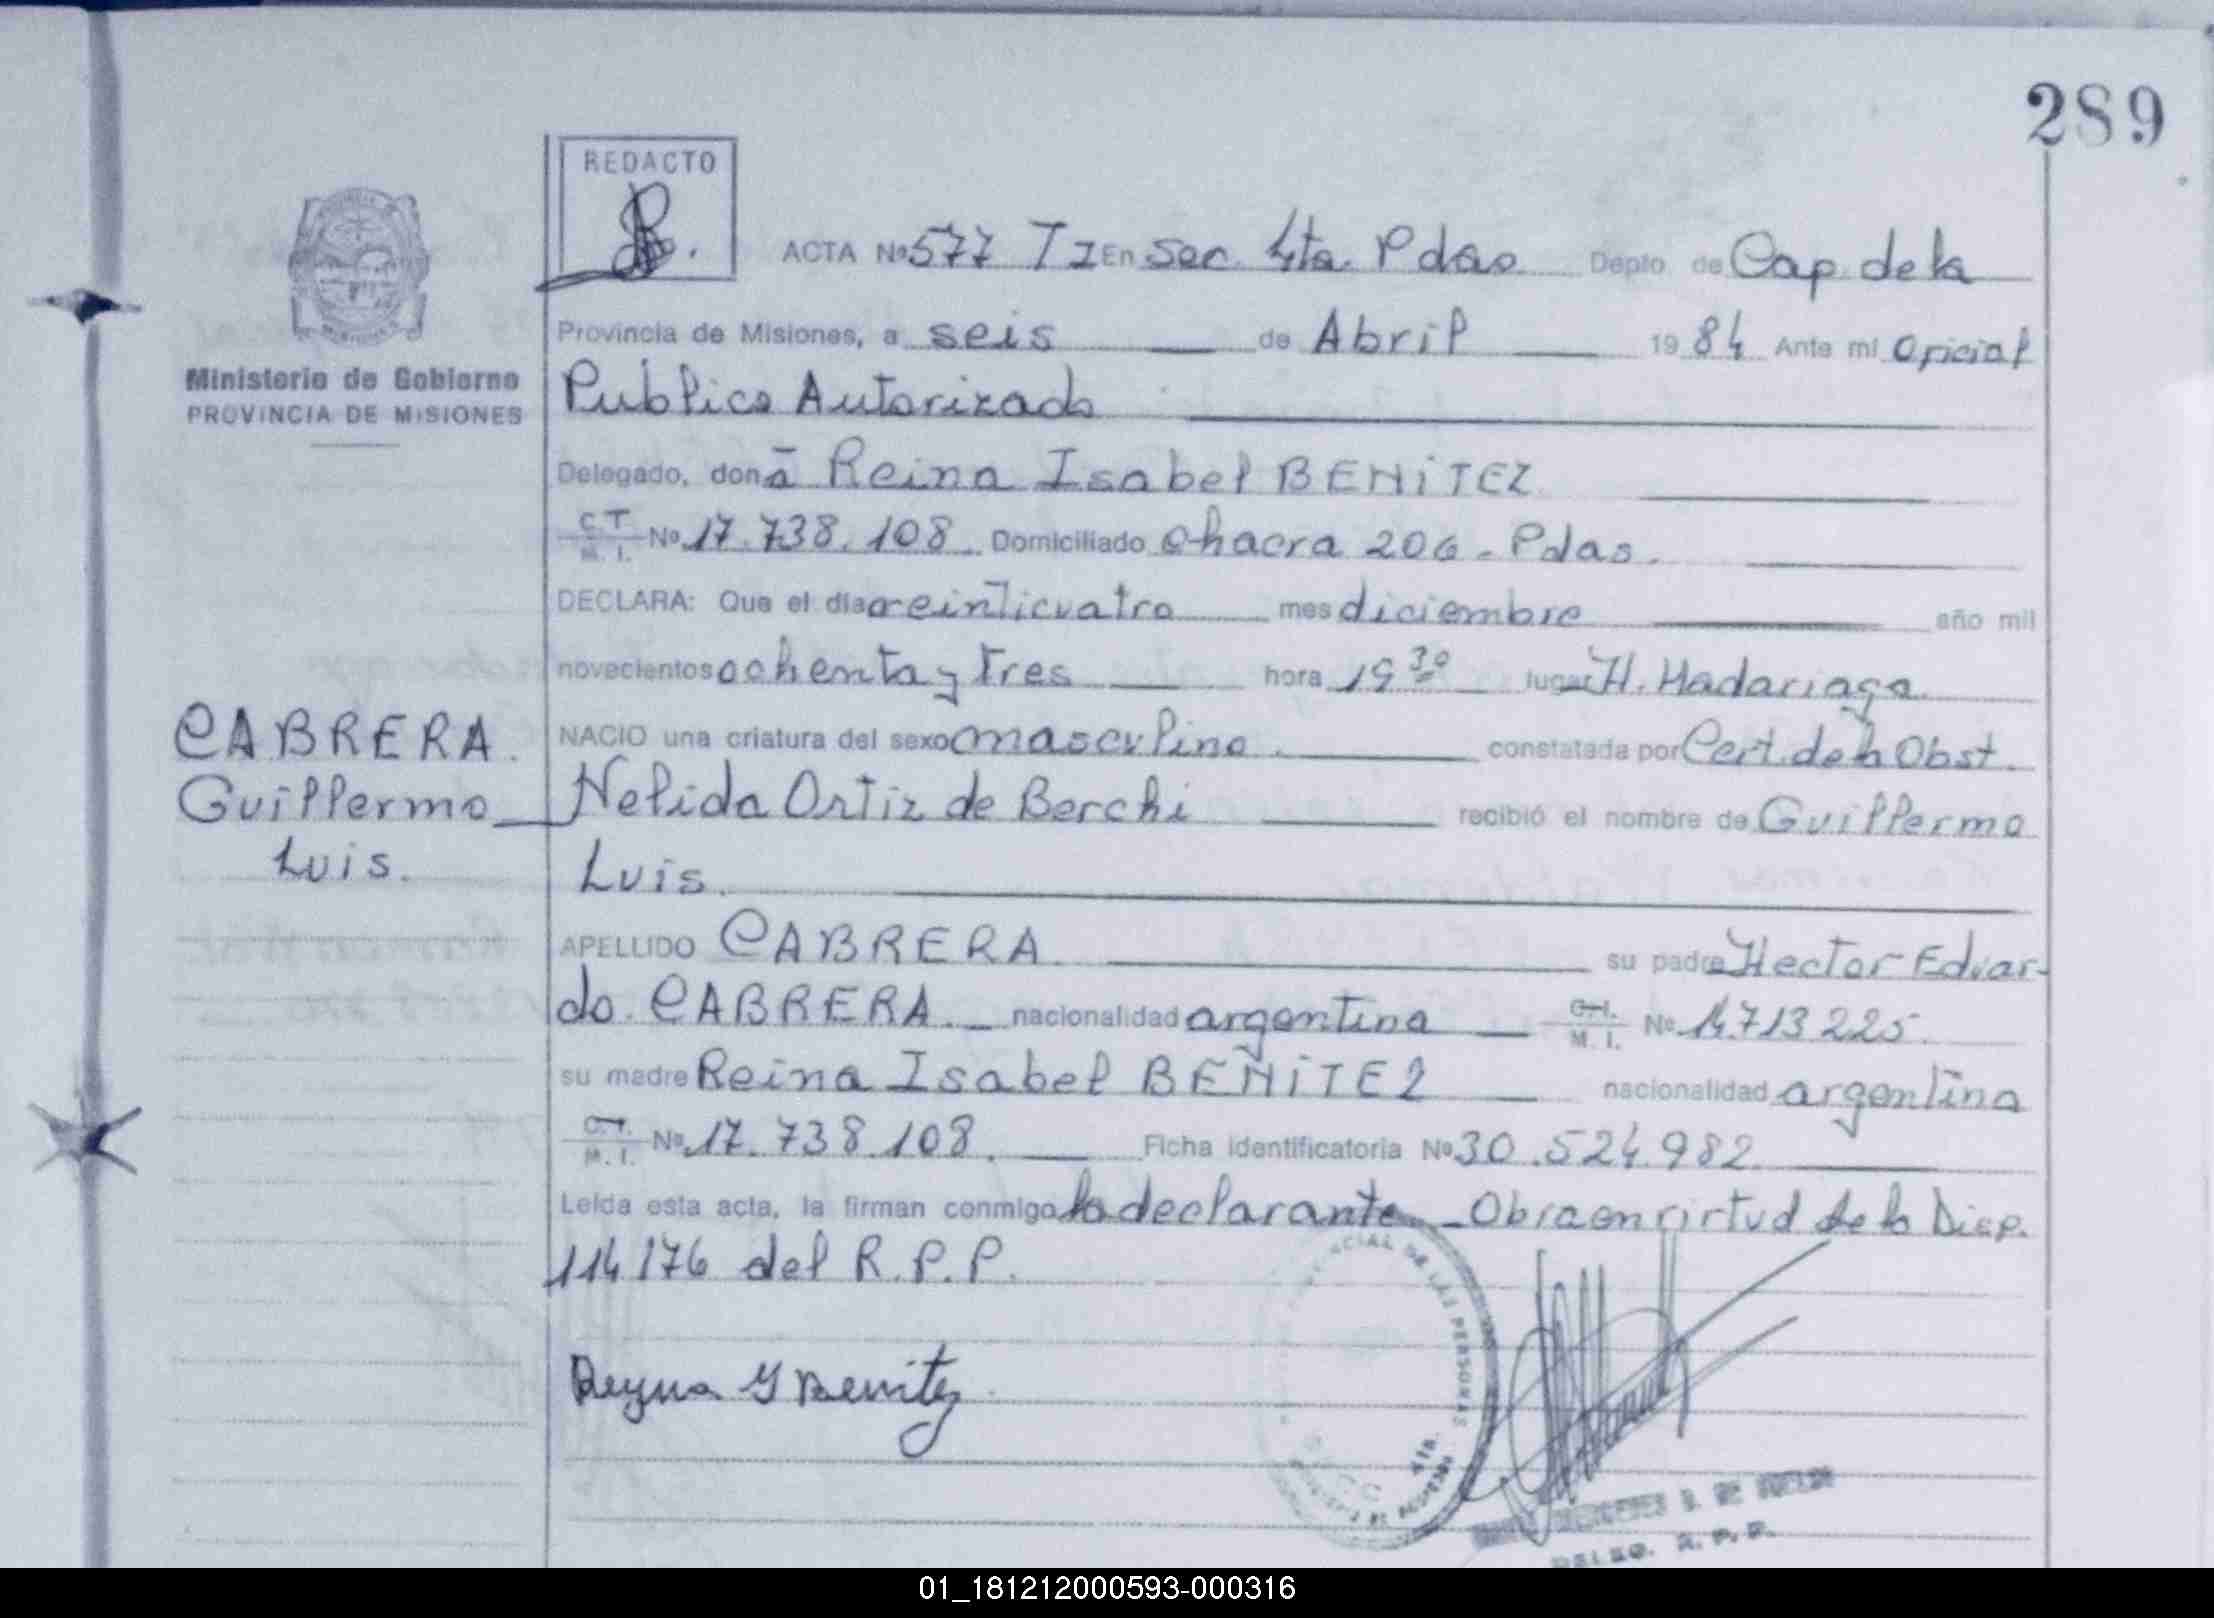 289
REDACTO
ACTA Nº 577 T I En Sec. 4ta. Pdas Depto de Cap. de la
Provincia de Misiones, a seis de Abril 1984 Ante mi Oficial
Ministerio de Gobierno
PROVINCIA DE MISIONES
Publico Autorizado
Delegado, don ã Reina Isabel BENITEZ
C.T. M. I. Nº 17.738.108. Domiciliado chacra 206 - Pdas.
DECLARA: Que el día veinticuatro mes diciembre año mil
novecientos ochenta y tres hora 19 30 lugar H. Madariaga
CABRERA.
Guillermo
Luis.
NACIO una criatura del sexo masculino. constatada por Cert. de la Obst.
Nelida Ortiz de Berchi recibió el nombre de Guillermo
Luis.
APELLIDO CABRERA su padre Hector Eduar-
do. CABRERA. nacionalidad argentina C.I. M. I. Nº 14.713.225.
su madre Reina Isabel BENITEZ nacionalidad argentina
C.I. M. I. Nº 17.738.108. Ficha identificatoria Nº 30.524.982
Leída esta acta, la firman conmigo la declarante. Obra en virtud de la Disp.
114/76 del R.P.P.
Reyna Y Benitez
CIAL DE LAS PERSONAS
4ta.
DELEG. R. P. P.
01_181212000593-000316